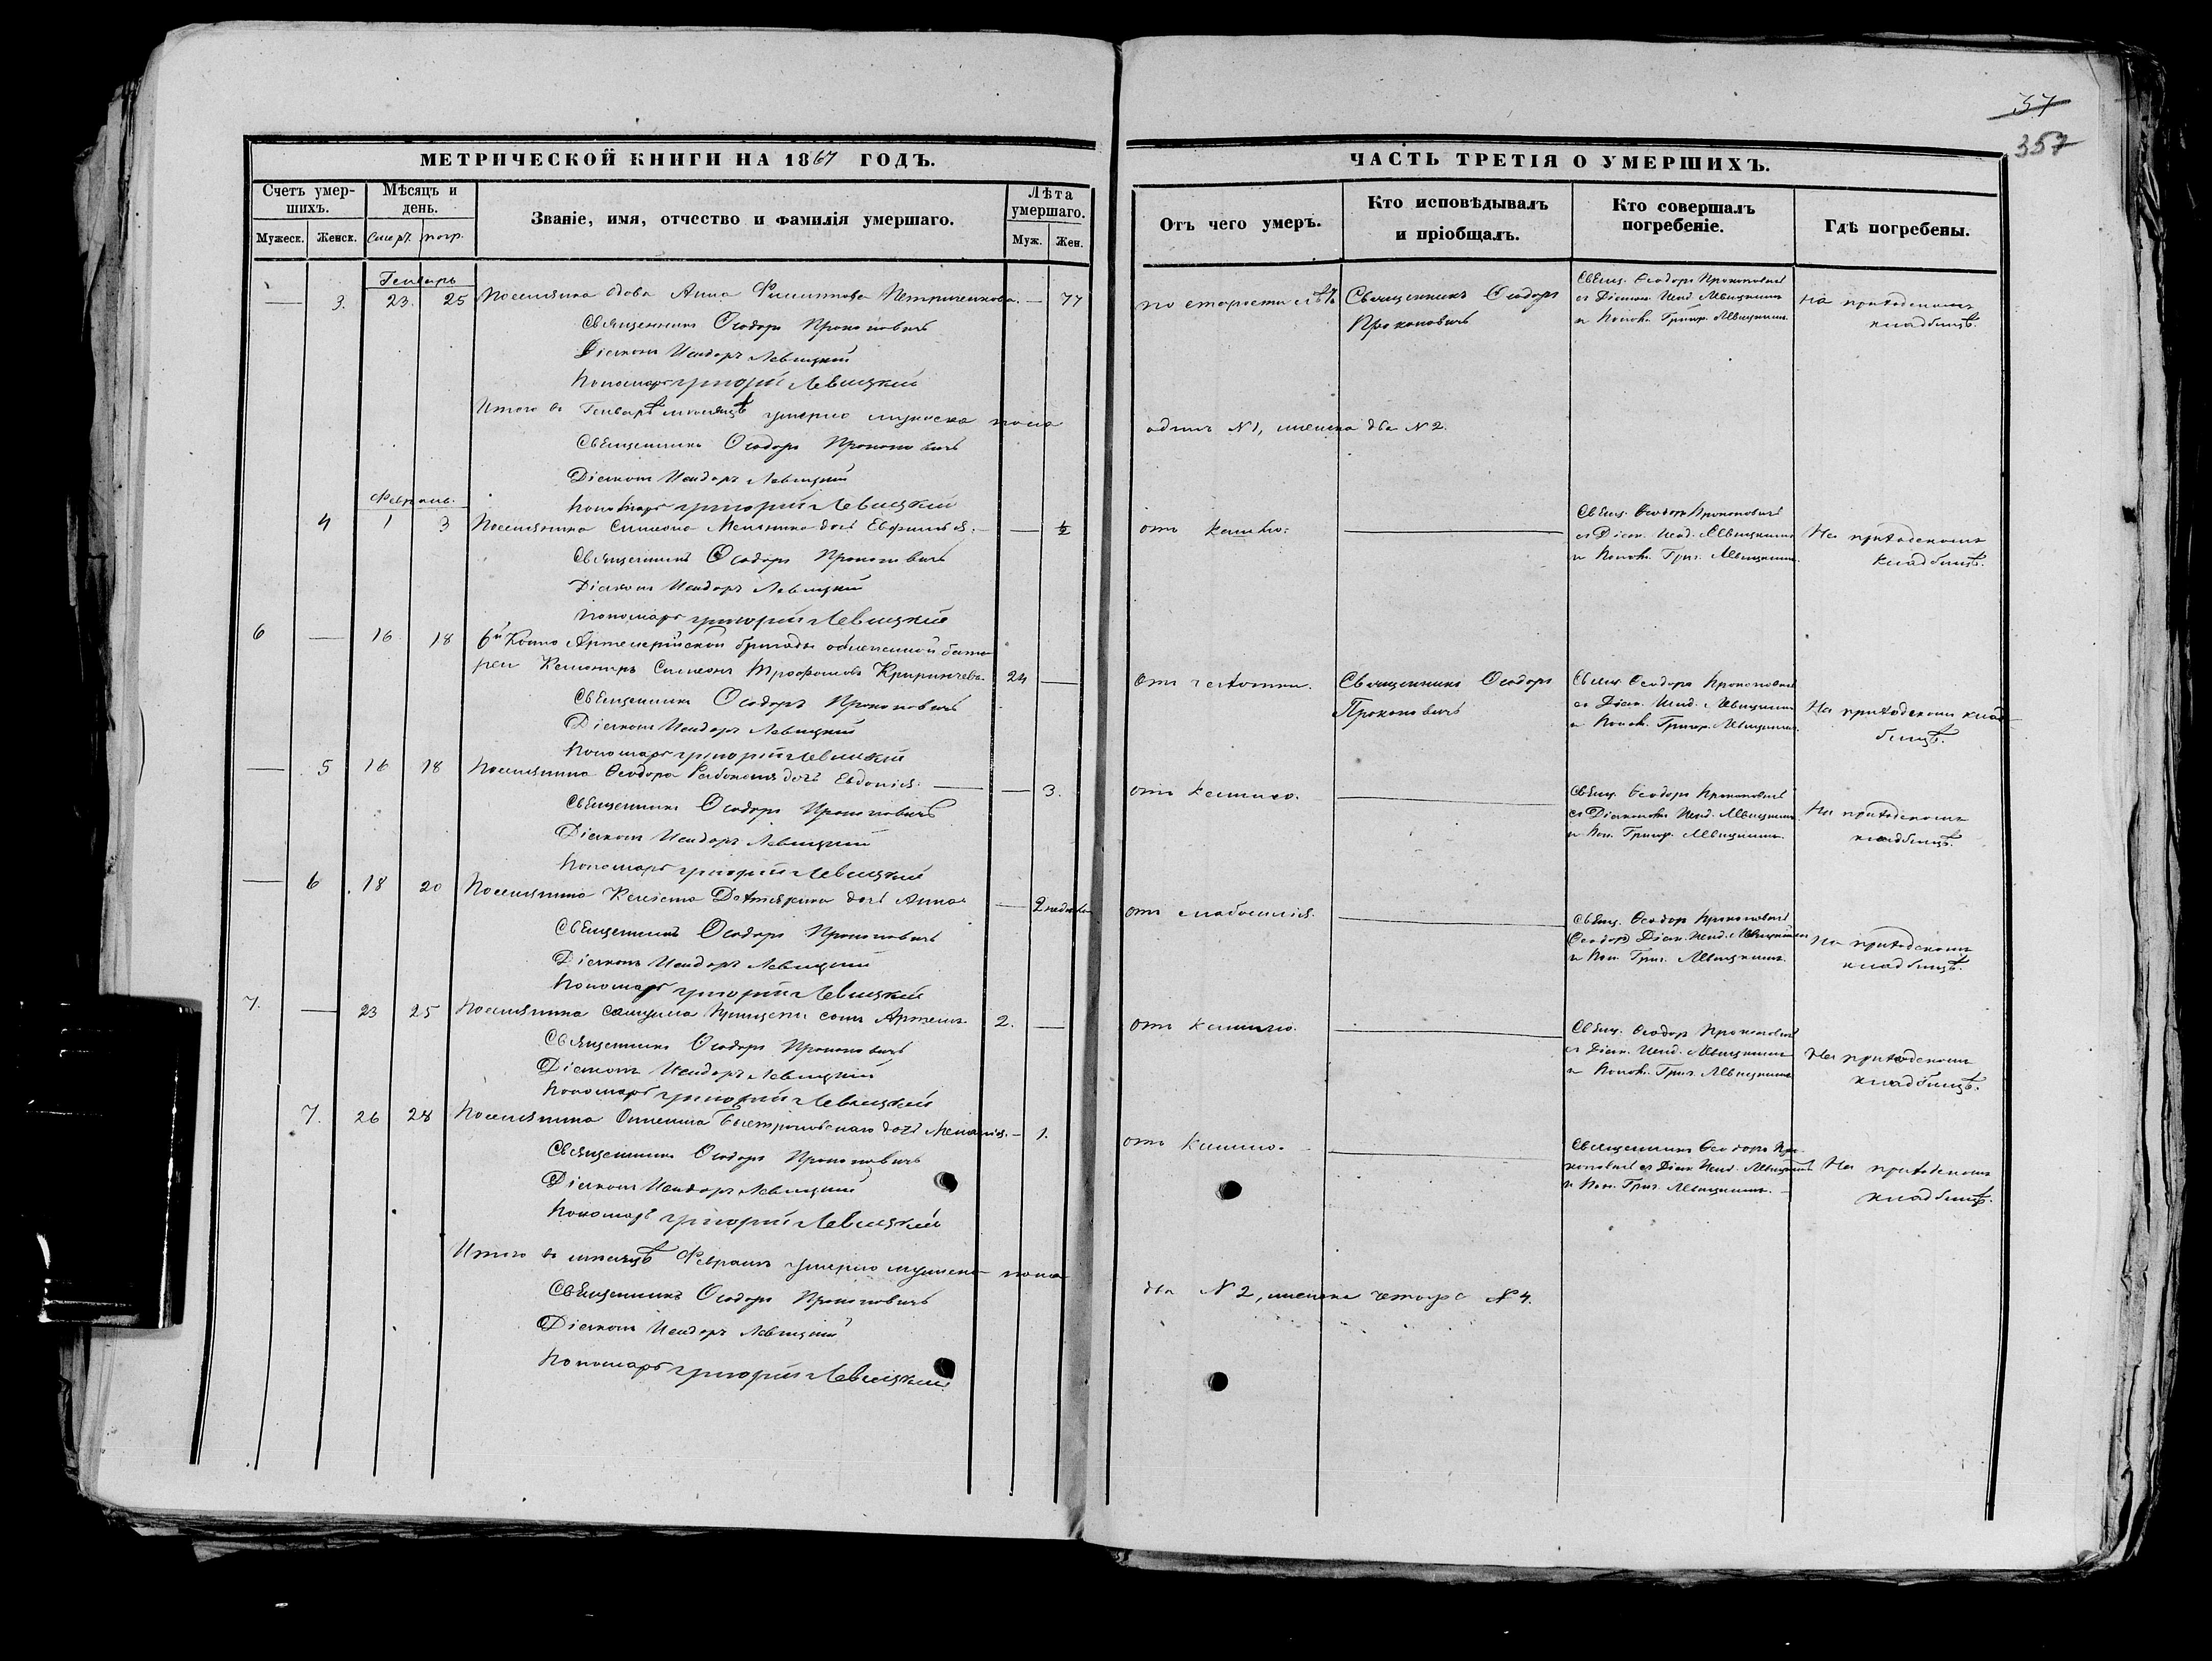 37
357
МЕТРИЧЕСКОЙ КНИГИ НА 1867 ГОДЪ.
Счетъ умер-
шихъ.
Мѣсяцъ и
день.
Званіе, имя, отчество и фамилія умершаго.
Лѣта
умершаго.
Мужеск. Женск. смерт. погр.
Муж. Жен.
ЧАСТЬ ТРЕТІЯ О УМЕРШИХЪ.
Отъ чего умеръ.
Кто исповѣдывалъ
и пріобщалъ.
Кто совершалъ
погребеніе.
Гдѣ погребены.
Генварь
— 3. 23. 25 Поселянина вдова Анна Филиппова Петриченкова. — 77
Священникъ Ѳеодоръ Прокоповичъ
Діаконъ Исидоръ Левицкій
Пономарь Григорій Левицкій
по старости лѣтъ
Священникъ Ѳеодоръ
Прокоповичъ
Свящ. Ѳеодоръ Прокоповичъ
съ Діакон. Исид. Левицкимъ
и Поном. Григор. Левицкимъ
На приходскомъ
кладбищѣ.
Итого въ Генварѣ мѣсяцѣ умерло мужеска пола
одинъ №1, женска два №2.
Священникъ Ѳеодоръ Прокоповичъ
Діаконъ Исидоръ Левицкій
Пономарь Григорій Левицкій
Февраль.
4 1 3 Поселянина Симеона дочь Евфимія. — ½
Священникъ Ѳеодоръ Прокоповичъ
Діаконъ Исидоръ Левицкій
Пономарь Григорій Левицкій
отъ кашлю.
Свящ. Ѳеодоръ Прокоповичъ
съ Діакон. Исид. Левицкимъ
и Поном. Григ. Левицкимъ.
На приходскомъ
кладбищѣ.
6 — 16 18 6й Конно Артилерійской бригады облегченной бата
реи Канониръ Симеонъ Трофимовъ 24 —
Священникъ Ѳеодоръ Прокоповичъ
Діаконъ Исидоръ Левицкій
Пономарь Григорій Левицкій
Отъ чахотки.
Священникъ Ѳеодоръ
Прокоповичъ
Свящ. Ѳеодоръ Прокоповичъ
съ Діакон. Исид. Левицкимъ
и Поном. Григор. Левицкимъ.
На приходскомъ клад-
бищѣ.
— 5 16 18 Поселянина Ѳеодора дочь Евдокія. — 3.
Священникъ Ѳеодоръ Прокоповичъ
Діаконъ Исидоръ Левицкій
Пономарь Григорій Левицкій
отъ кашлю.
Свящ. Ѳеодоръ Прокоповичъ
съ Діакономъ Исид. Левицкимъ
и Пон. Григор. Левицкимъ.
На приходскомъ
кладбищѣ.
— 6 18 20 Поселянина дочь Анна — 2 недѣли
Священникъ Ѳеодоръ Прокоповичъ
Діаконъ Исидоръ Левицкій
Пономарь Григорій Левицкій
отъ слабосилія.
Свящ. Ѳеодор Прокоповичъ
Ѳеодор Діак. Исид. Левицкимъ
и Пон. Григ. Левицкимъ.
На приходскомъ
кладбищѣ.
7. — 23 25 Поселянина сынъ Артемъ 2. —
Священникъ Ѳеодоръ Прокоповичъ
Діаконъ Исидоръ Левицкій
Пономарь Григорій Левицкій
отъ кашлю.
Свящ. Ѳеодор Прокоповичъ
съ Діак. Исид. Левицкимъ
и Поном. Григ. Левицкимъ
На приходскомъ
кладбищѣ.
7. 26 28 Поселянина дочь Меланія. — 1.
Священникъ Ѳеодоръ Прокоповичъ
Діаконъ Исидоръ Левицкій
Пономарь Григорій Левицкій
отъ кашлю.
Священникъ Ѳеодоръ Про-
коповичъ съ Діак. Исид. Левицкимъ
и Пон. Григ. Левицкимъ.
На приходскомъ
кладбищѣ.
Итого въ мѣсяцѣ Февралѣ умерло мужеска пола
два №2, женска четыре №4.
Священникъ Ѳеодоръ Прокоповичъ
Діаконъ Исидоръ Левицкій
Пономарь Григорій Левицкій